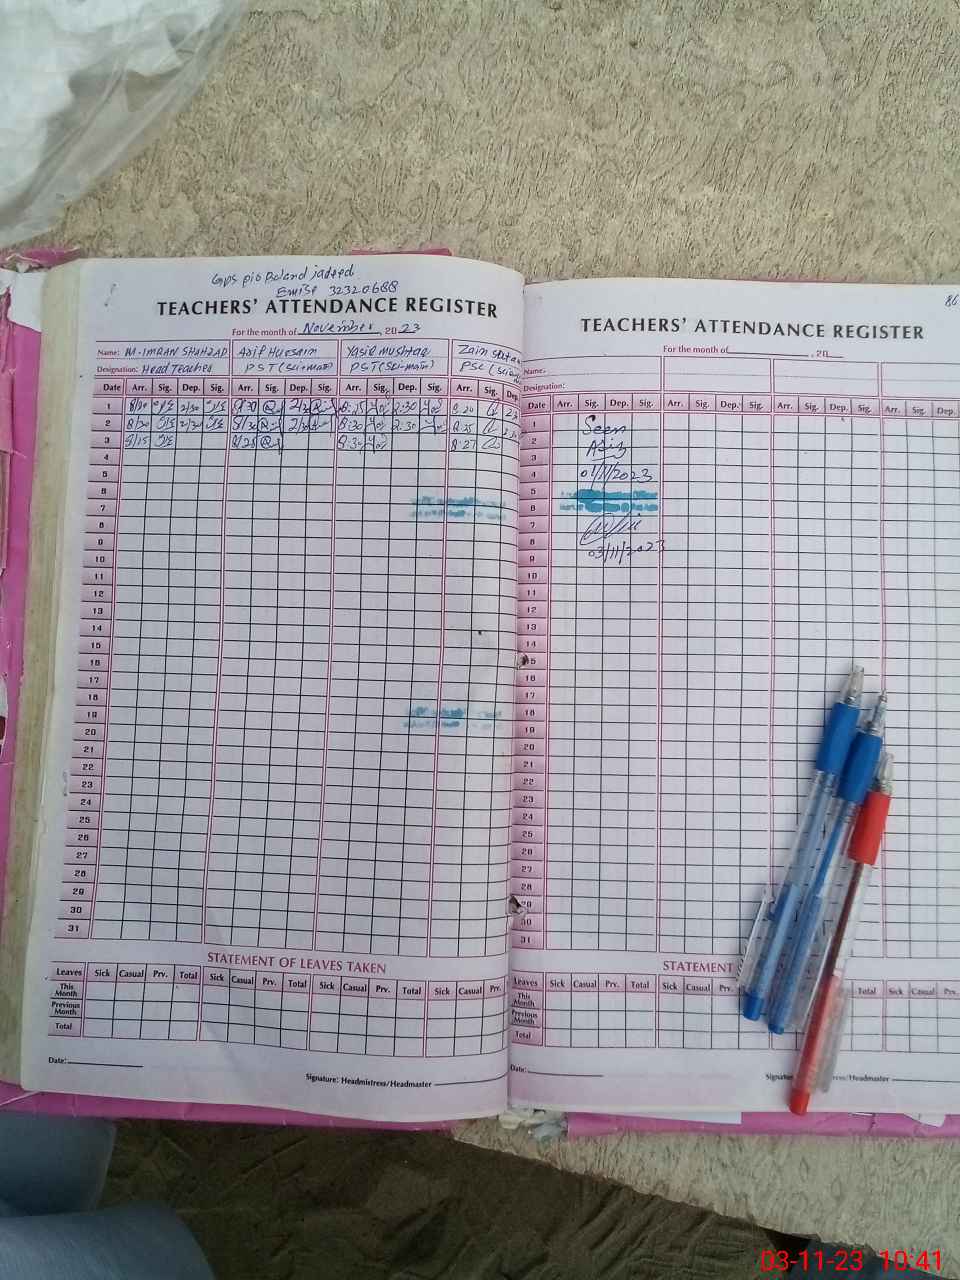 Emise 32320688
TEACHERS' ATTENDANCE REGISTER
For the month of November, 2023
Name: M-IMRAN SHAHZAD Arif Hussain Yasir Mushtaq Zain
Designation: Head Teacher PST (Sci-math) PST (Sci-math) PSC
Date Arr. Sig. Dep. Sig. Arr. Sig. Dep. Sig. Arr. Sig. Dep. Sig. Arr. Sig. Dep.
1 8/20 2/30 8/30 2/30 8:25 2:30 8:20
2 8/20 2/30 8/30 2/30 8:30 2:30 8:25
3 8/15 8/25 8:30 8:27
4
5
6
7
8
9
10
11
12
13
14
15
16
17
18
19
20
21
22
23
24
25
26
27
28
29
30
31
STATEMENT OF LEAVES TAKEN
Leaves Sick Casual Prv. Total Sick Casual Prv. Total Sick Casual Prv. Total Sick Casual Prv.
This Month
Previous Month
Total
Date:
Signature: Headmistress/Headmaster
86
TEACHERS' ATTENDANCE REGISTER
For the month of , 20
Name:
Designation:
Date Arr. Sig. Dep. Sig. Arr. Sig. Dep. Sig. Arr. Sig. Dep. Sig. Arr. Sig. Dep.
1 Seen
2
3
4 01/11/2023
5
6
7
8
9 03/11/2023
10
11
12
13
14
15
16
17
18
19
20
21
22
23
24
25
26
27
28
29
30
31
STATEMENT
Leaves Sick Casual Prv. Total Sick Casual Prv. Total Sick Casual Prv.
This Month
Previous Month
Total
Date:
03-11-23 10:41